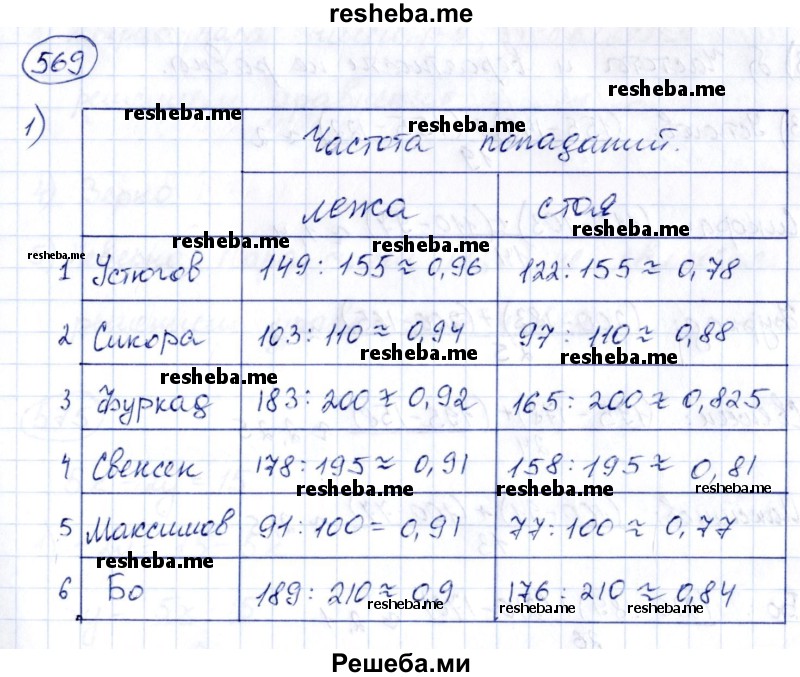 resheba.me
569
resheba.me
resheba.me
resheba.me
1)
Частота попаданий.
лежа стоя
resheba.me resheba.me resheba.me
resheba.me
1 Устюгов 149 : 155 ≈ 0,96 122 : 155 ≈ 0,78
2 Сикора 103 : 110 ≈ 0,94 97 : 110 ≈ 0,88
resheba.me resheba.me
resheba.me
3 Фуркад 183 : 200 ≈ 0,92 165 : 200 ≈ 0,825
4 Свенсен 178 : 195 ≈ 0,91 158 : 195 ≈ 0,81
resheba.me resheba.me resheba.me
5 Максимов 91 : 100 = 0,91 77 : 100 ≈ 0,77
resheba.me
6 Бо 189 : 210 ≈ 0,9 176 : 210 ≈ 0,84
resheba.me resheba.me resheba.me
Решеба.ми